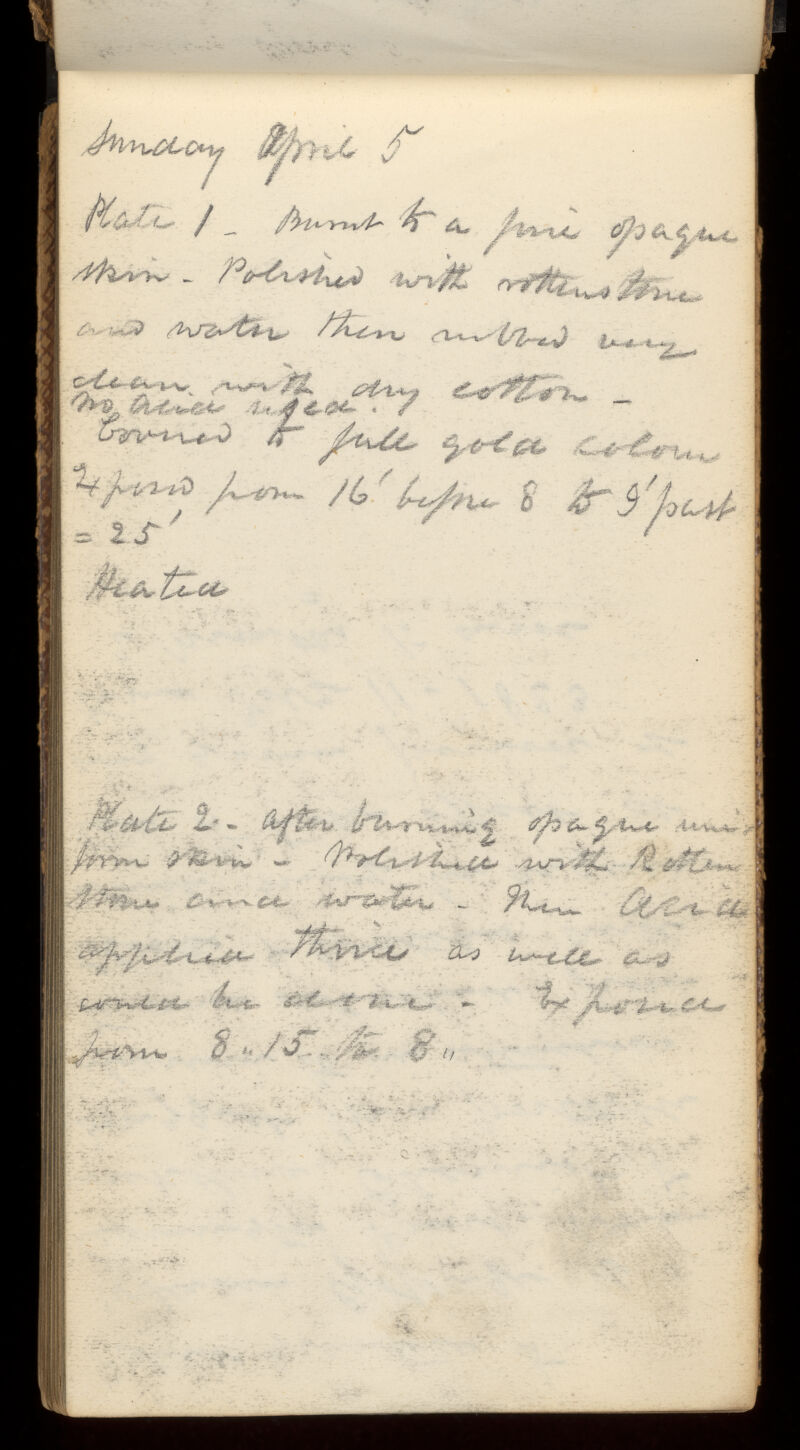 Sunday April 5
Plate 1 - Burnt to a fine opaque
skin - Polished with rottenstone
and water then rubbed very
clean with dry cotton -
No Acid used.
Covered to full gold colour
Exposed from 16' before 8 to 9' past
= 25'
Heated
Plate 2 - After burning opaque uni-
form skin - Polished with Rotten
stone and water - Then Acid
applied thrice as well as
could be done - Exposed
from 8 " 15 to 8 "